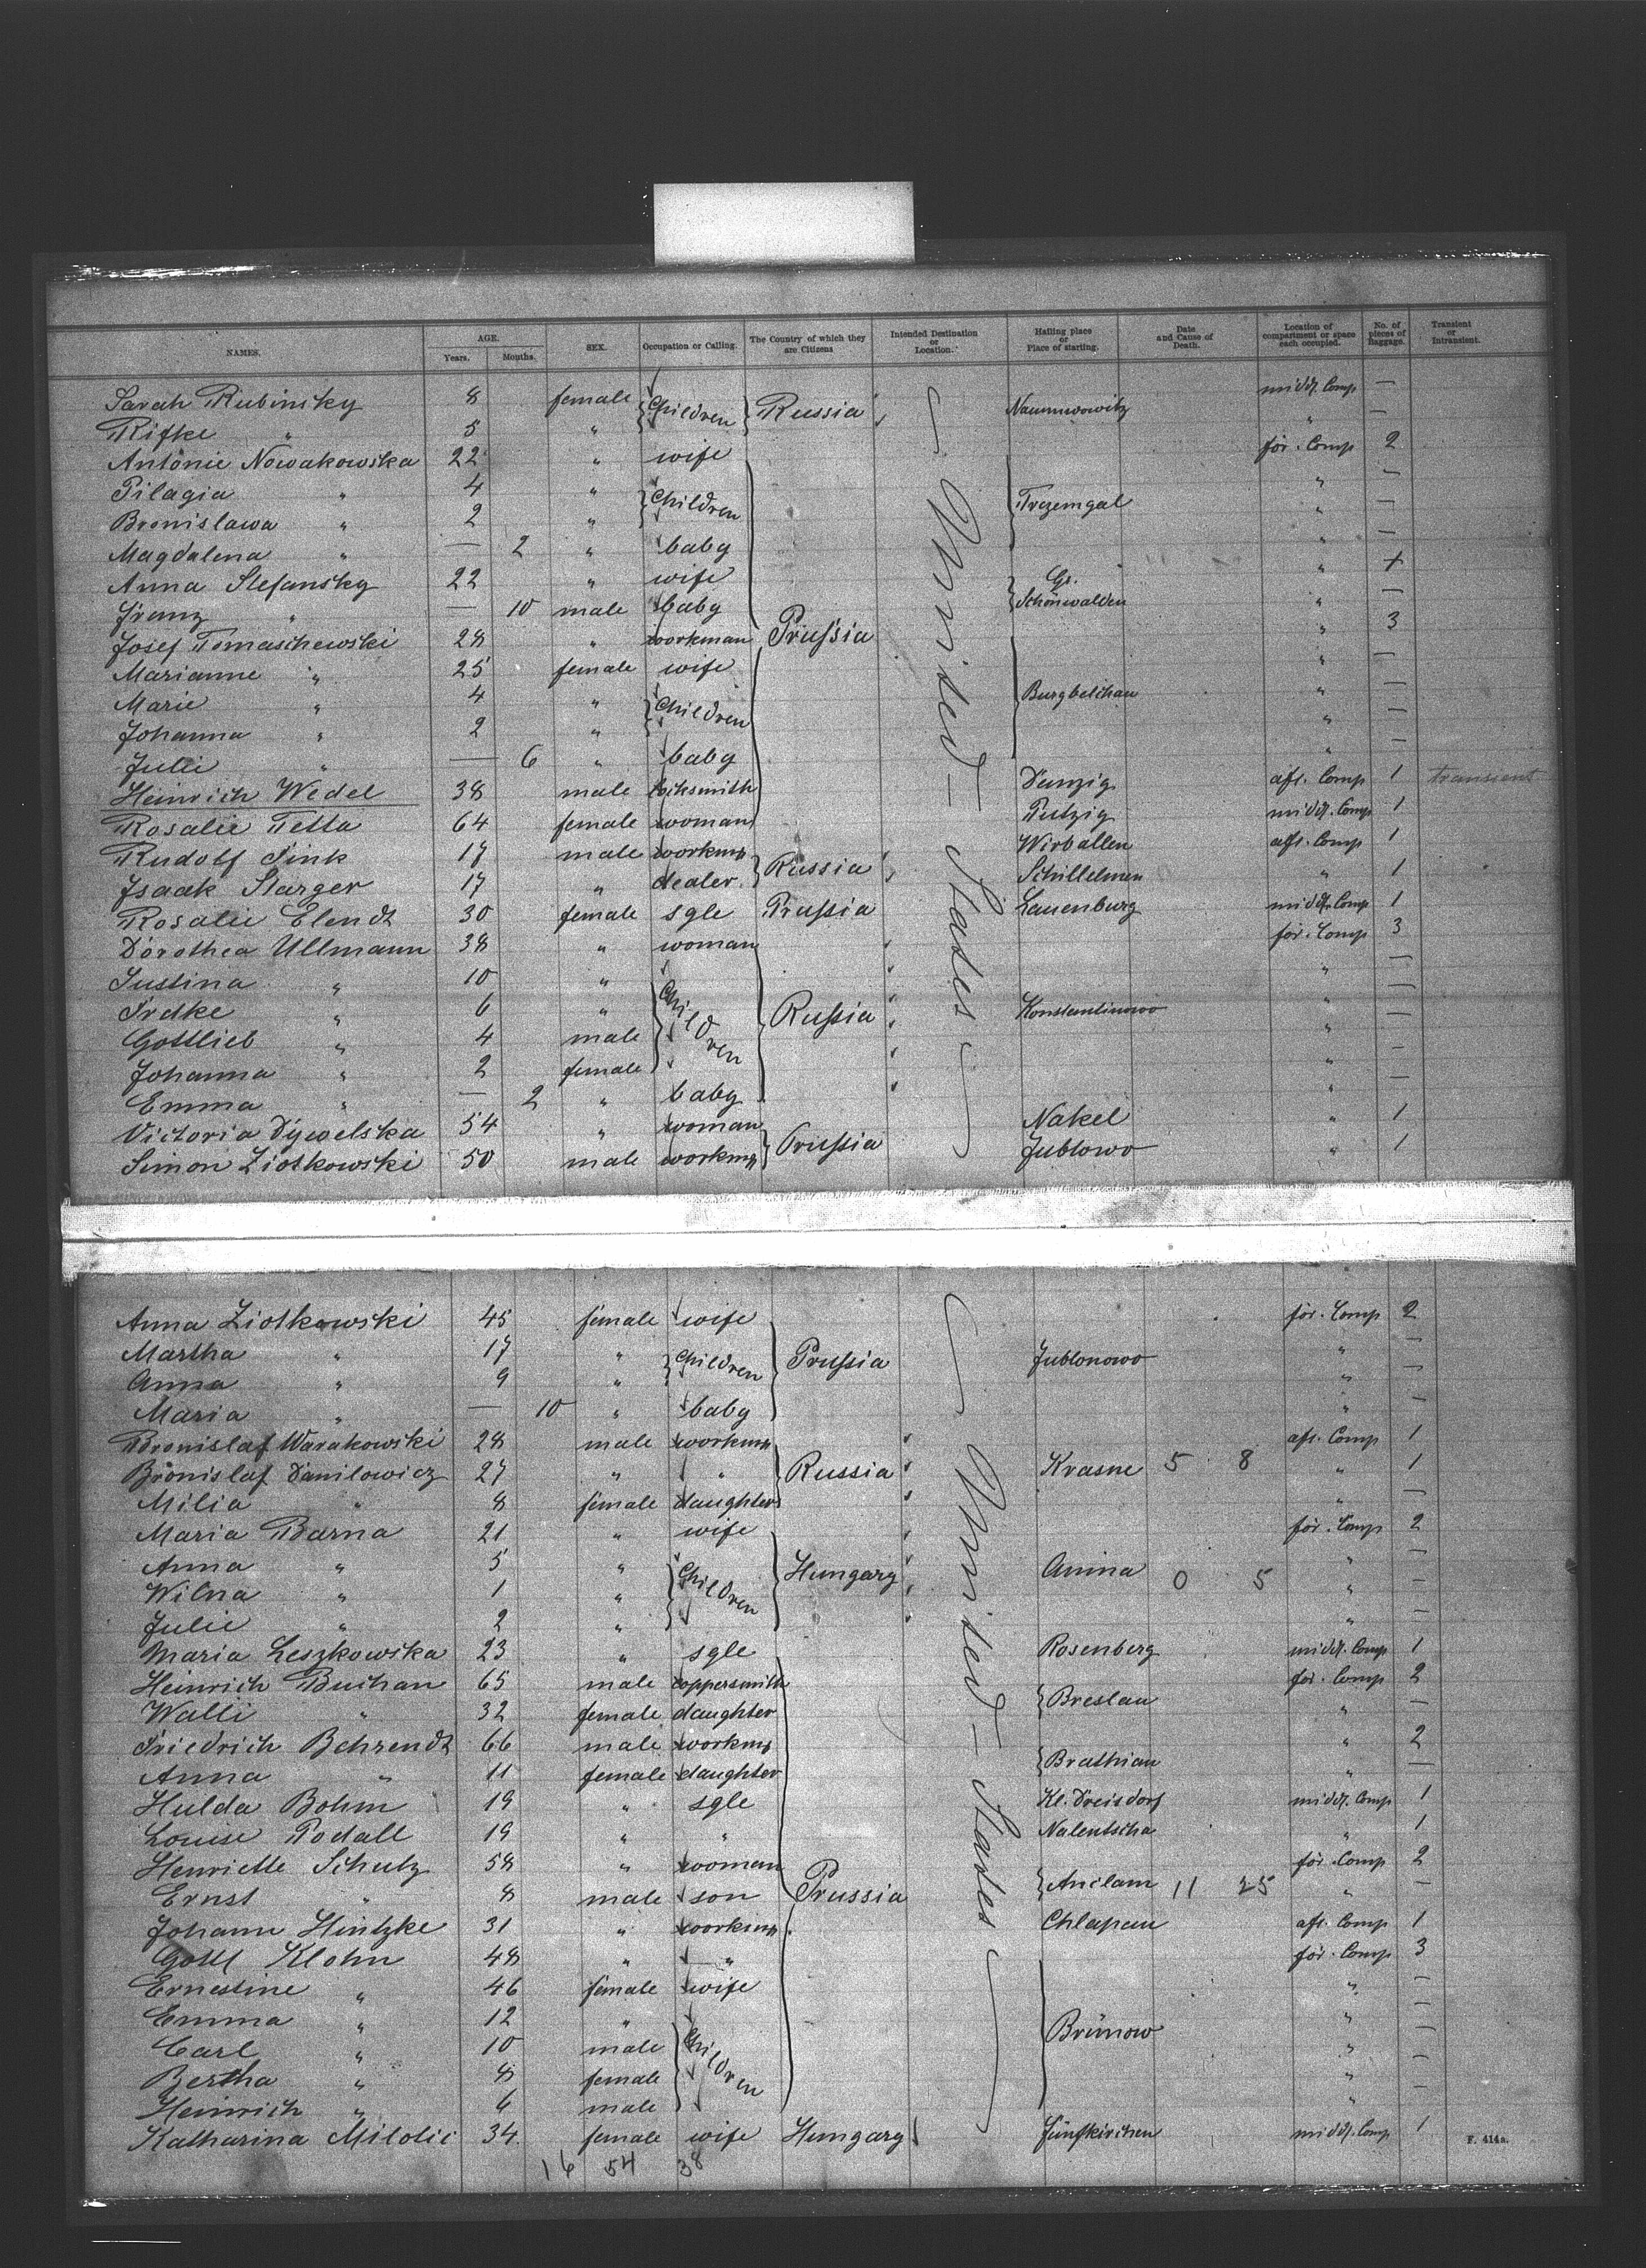 NAMES. AGE. Years. Months. SEX. Occupation or Calling. The Country of which they are Citizens Intended Destination or Location. Hailing place or Place of starting. Date and Cause of Death. Location of compartment or space each occupied. No. of pieces of Baggage. Transient or Intransient.
Sarah Rubinsky 8 female Children Russia middl. Comp —
Rifke " 5 " " —
Antonie Nowakowska 22 " wife for. Comp 2
Pilagia " 4 " Children Trzemgal " —
Bronislawa " 2 " " —
Magdalena " — 2 " baby " —
Anna Stefansky 22 " wife Gr. Schönwalden "
Franz " — 10 male baby " —
Josef Tomaschewski 28 " workman Prussia " 3
Marianne " 25 female wife " —
Marie " 4 " Children Burgbelchau " —
Johanna " 2 " " —
Julie " — 6 " baby " —
Heinrich Wedel 38 male locksmith Danzig aft. Comp 1 transient
Rosalie Tetta 64 female woman Putzig middl. Comp 1
Rudolf Fink 17 male workmn Russia Wirballen aft. Comp 1
Isaak Starger 17 " dealer Schillelmen " 1
Rosalie Elendt 30 female sgle Prussia Lauenburg middl. Comp 1
Dorothea Ullmann 38 " woman for. Comp 3
Justina " 10 " Children " —
" 6 " Russia Konstantinowo " —
Gottlieb " 4 male " —
Johanna " 2 female " —
Emma " — 2 " baby " —
Victoria Dywelska 54 " woman Prussia Nakel " 1
Simon Ziotkowski 50 male workmn Jublowo " 1
United States
Anna Ziotkowski 45 female wife for. Comp 2
Martha " 17 " Children Prussia Jublonowo " —
Anna " 9 " " —
Maria " — 10 " baby " —
Bronislaf Warakowski 28 male workmn aft. Comp 1
Bronislaf Danilowicz 27 " " Russia Krasne 5 8 " 1
Milia " 8 female daughter " —
Maria Barna 21 " wife for. Comp 2
Anna " 5 " Children Hungary Anina 0 5 " —
Wilna " 1 " " —
Julie " 2 " " —
Maria Leszkowska 23 " sgle Rosenberg middl. Comp 1
Heinrich Buchan 65 male coppersmith Breslau for. Comp 2
Walli " 32 female daughter " —
Friedrich Behrendt 66 male workmn Brathian " 2
Anna " 11 female daughter " —
Hulda Bohm 19 " sgle Kl. Dreisdorf middl. Comp 1
Louise Podall 19 " " Nalentscha " 1
Henriette Schulz 58 " woman for. Comp 2
Ernst " 8 male son Prussia Anclam 11 25 " —
Johann Hintzke 31 " workmn Chlapau aft. Comp 1
Gottl Klohn 48 " " for. Comp 3
Ernestine " 46 female wife " —
Emma " 12 " Children Brünow " —
Carl " 10 male " —
Bertha " 8 female " —
Heinrich " 6 male " —
Katharina Milolii 34 female wife Hungary Fünfkirchen middl. Comp 1
United States
16 54 38
F. 414a.